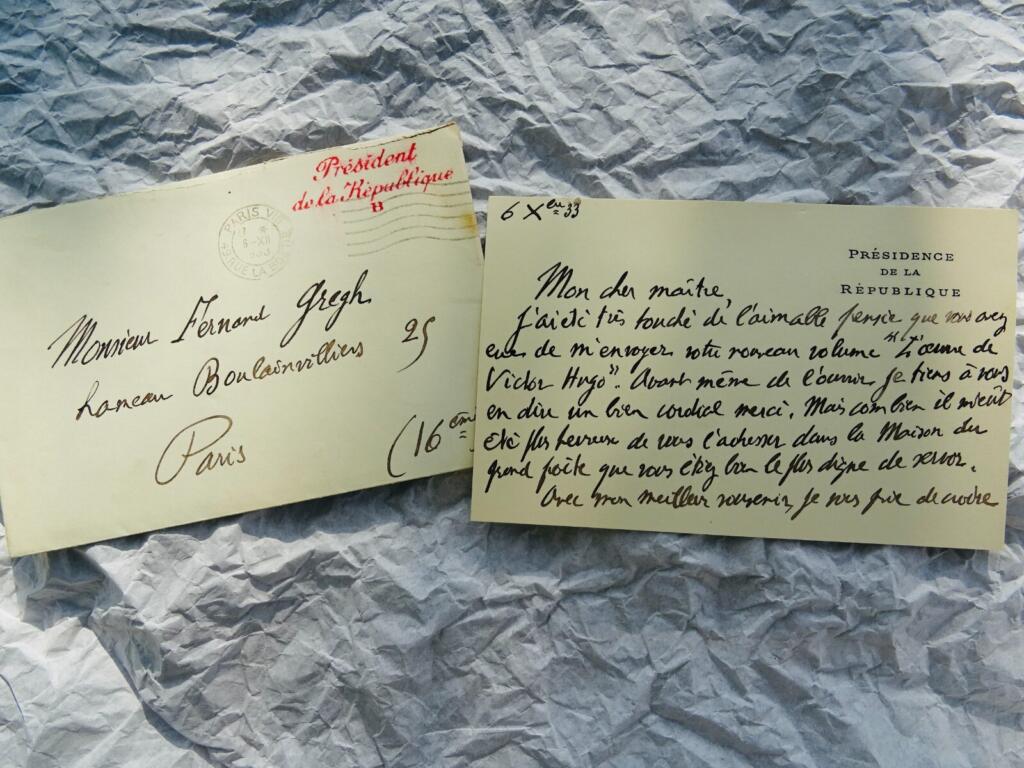 Président
de la République
B
PARIS VII
6-XII
Monsieur Fernand Gregh
hameau Boulainvilliers 25
Paris
(16 eme
6 Xbre 33
PRÉSIDENCE
DE LA
RÉPUBLIQUE
Mon cher maître,
j'ai été très touché de l'aimable pensée que vous avez
eue de m'envoyer votre nouveau volume "L'œuvre de
Victor Hugo". Avant même de l'ouvrir, je tiens à vous
en dire un bien cordial merci. Mais combien il m'eût
été plus heureux de vous l'adresser dans la Maison du
grand poète que vous étiez bien le plus digne de servir.
Avec mon meilleur souvenir, je vous prie de croire